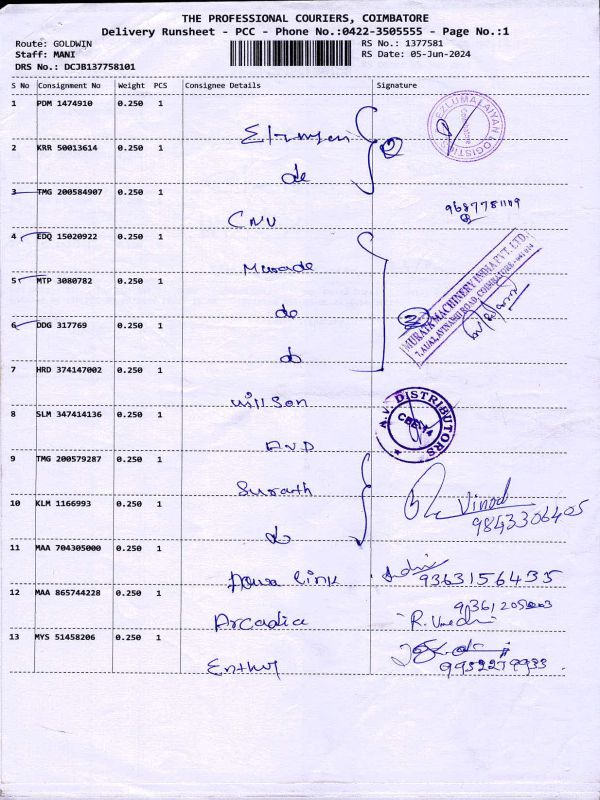 THE PROFESSIONAL COURIERS, COIMBATORE
Delivery Runsheet - PCC - Phone No.:0422-3505555 - Page No.:1
Route: GOLDWIN
Staff: MANI
DRS No.: DCJB137758101
RS No.: 1377581
RS Date: 05-Jun-2024
S No Consignment No Weight PCS Consignee Details Signature
1 PDM 1474910 0.250 1
EZLUMALAIYAN LOGISTICS
2 KRR 50013614 0.250 1
do
3 TMG 200584907 0.250 1
CNU
4 EDQ 15020922 0.250 1
Murade
5 MTP 3080782 0.250 1
do
MURATA MACHINERY INDIA PVT. LTD.
6 DDG 317769 0.250 1
do
7 HRD 374147002 0.250 1
Willson
8 SLM 347414136 0.250 1
AVD
A.V. DISTRIBUTORS
CBE-14
9 TMG 200579287 0.250 1
Surath
10 KLM 1166993 0.250 1
do
Vinod
9843306405
11 MAA 704305000 0.250 1
link
9363156435
12 MAA 865744228 0.250 1
Arcadia
13 MYS 51458206 0.250 1
9952279933